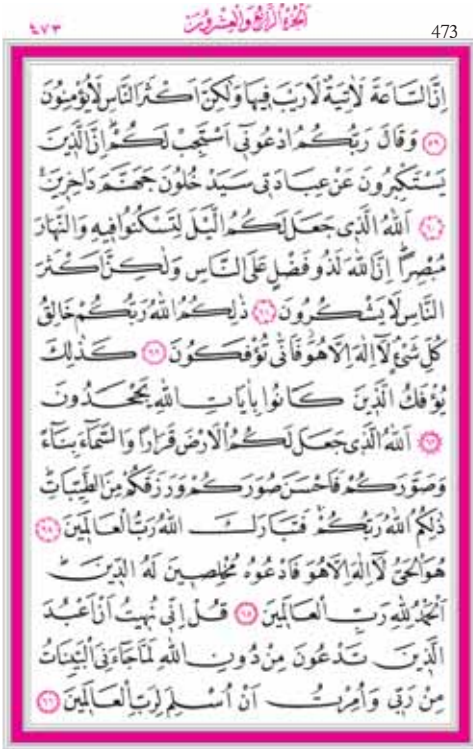 ٤٧٣ اَلْجُزْءُ الرَّابِعُ وَالْعِشْرُونَ 473
اِنَّ السَّاعَةَ لَاٰتِيَةٌ لَا رَيْبَ فِيهَا وَلٰكِنَّ اَكْثَرَ النَّاسِ لَا يُؤْمِنُونَ
﴿٥٩﴾ وَقَالَ رَبُّكُمُ ادْعُونٓي اَسْتَجِبْ لَكُمْ اِنَّ الَّذِينَ
يَسْتَكْبِرُونَ عَنْ عِبَادَتٖي سَيَدْخُلُونَ جَهَنَّمَ دَاخِرٖينَ
﴿٦٠﴾ اَللّٰهُ الَّذٖي جَعَلَ لَكُمُ الَّيْلَ لِتَسْكُنُوا فٖيهِ وَالنَّهَارَ
مُبْصِرًا اِنَّ اللّٰهَ لَذُو فَضْلٍ عَلَى النَّاسِ وَلٰكِنَّ اَكْثَرَ
النَّاسِ لَا يَشْكُرُونَ ﴿٦١﴾ ذٰلِكُمُ اللّٰهُ رَبُّكُمْ خَالِقُ
كُلِّ شَيْءٍ لَٓا اِلٰهَ اِلَّا هُوَ فَاَنّٰى تُؤْفَكُونَ ﴿٦٢﴾ كَذٰلِكَ
يُؤْفَكُ الَّذٖينَ كَانُوا بِاٰيَاتِ اللّٰهِ يَجْحَدُونَ
﴿٦٣﴾ اَللّٰهُ الَّذٖي جَعَلَ لَكُمُ الْاَرْضَ قَرَارًا وَالسَّمَٓاءَ بِنَٓاءً
وَصَوَّرَكُمْ فَاَحْسَنَ صُوَرَكُمْ وَرَزَقَكُمْ مِنَ الطَّيِّبَاتِ
ذٰلِكُمُ اللّٰهُ رَبُّكُمْ فَتَبَارَكَ اللّٰهُ رَبُّ الْعَالَمٖينَ ﴿٦٤﴾
هُوَ الْحَيُّ لَٓا اِلٰهَ اِلَّا هُوَ فَادْعُوهُ مُخْلِصٖينَ لَهُ الدّٖينَ
اَلْحَمْدُ لِلّٰهِ رَبِّ الْعَالَمٖينَ ﴿٦٥﴾ قُلْ اِنّٖي نُهٖيتُ اَنْ اَعْبُدَ
الَّذٖينَ تَدْعُونَ مِنْ دُونِ اللّٰهِ لَمَّا جَٓاءَنِيَ الْبَيِّنَاتُ
مِنْ رَبّٖي وَاُمِرْتُ اَنْ اُسْلِمَ لِرَبِّ الْعَالَمٖينَ ﴿٦٦﴾